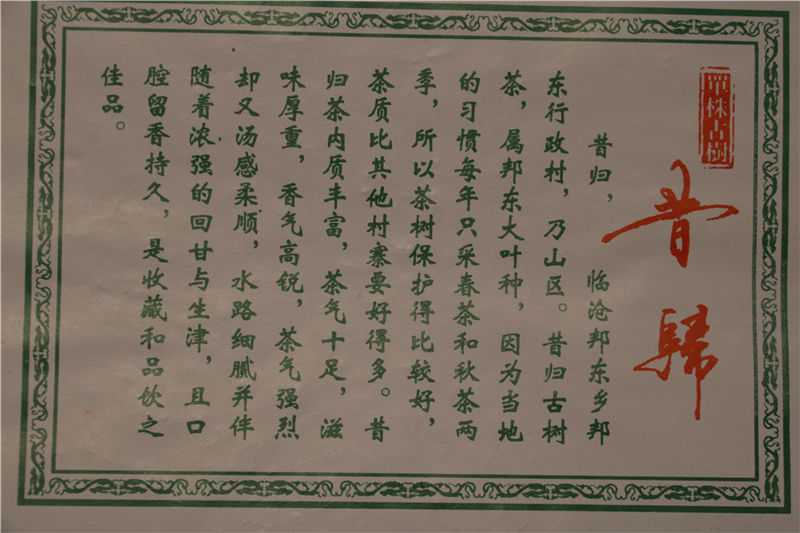 單株古樹
昔歸
昔归， 临沧邦东乡邦
东行政村，乃山区。昔归古树
茶，属邦东大叶种，因为当地
的习惯每年只采春茶和秋茶两
季，所以茶树保护得比较好，
茶质比其他村寨要好得多。昔
归茶内质丰富，茶气十足，滋
味厚重，香气高锐，茶气强烈
却又汤感柔顺，水路细腻并伴
随着浓强的回甘与生津，且口
腔留香持久，是收藏和品饮之
佳品。